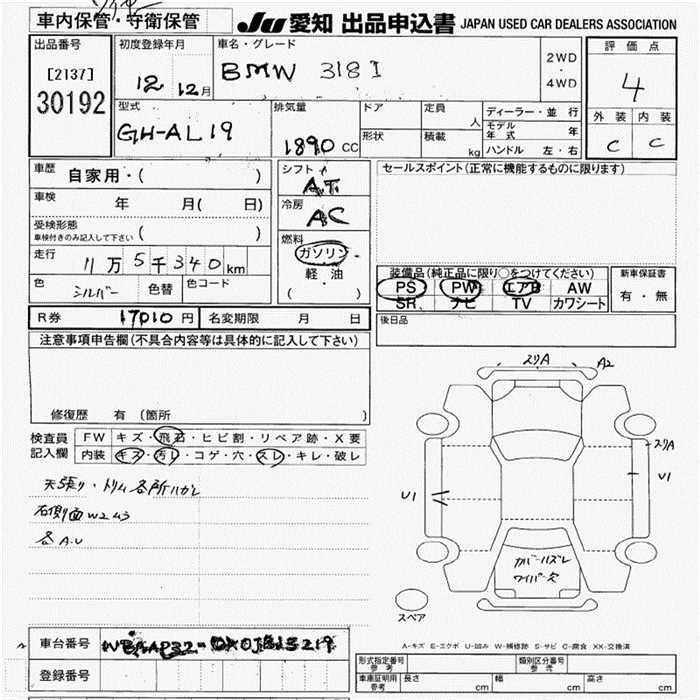 車内保管・守衛保管
JU 愛知 出品申込書 JAPAN USED CAR DEALERS ASSOCIATION
出品番号
[2137]
30192
初度登録年月
12 12月
車名・グレード
BMW 318I
2WD
・
4WD
評価点
4
外装 内装
C C
型式
GH-AL19
排気量
1890 CC
ドア
定員
人
形状
積載
kg
ディーラー・並行
モデル年式 年
ハンドル 左・右
車歴
自家用・( )
車検
年 月( 日)
受検形態
車検付きのみ記入して下さい ( )
走行
11万5千340km
色
シルバー
色替
色コード
シフト
AT
冷房
AC
燃料
ガソリン・
軽油
( )
セールスポイント(正常に機能するものに限ります)
装備品(純正品に限り○をつけてください)
PS PW エアB AW
SR ナビ TV カワシート
新車保証書
有・無
R券 17010円 名変期限 月 日
後日品
注意事項申告欄(不具合内容等は具体的に記入して下さい)
修復歴 有 (箇所 )
検査員記入欄
FW キズ・飛石・ヒビ割・リペア跡・X要
内装 キズ・汚レ・コゲ・穴・スレ・キレ・破レ
天張り・トリム各所ハガレ
右側面W2ムラ
各A.U
スリA A2
スリA
U1
U1
カバーハズレ
ワイパー欠
スペア
A-キズ E-エクボ U-凹み W-補修跡 S-サビ C-腐食 XX-交換済
車台番号
登録番号
形式指定番号
参考
類別区分番号
参考
車庫証明用
参考
長さ cm 幅 cm 高さ cm